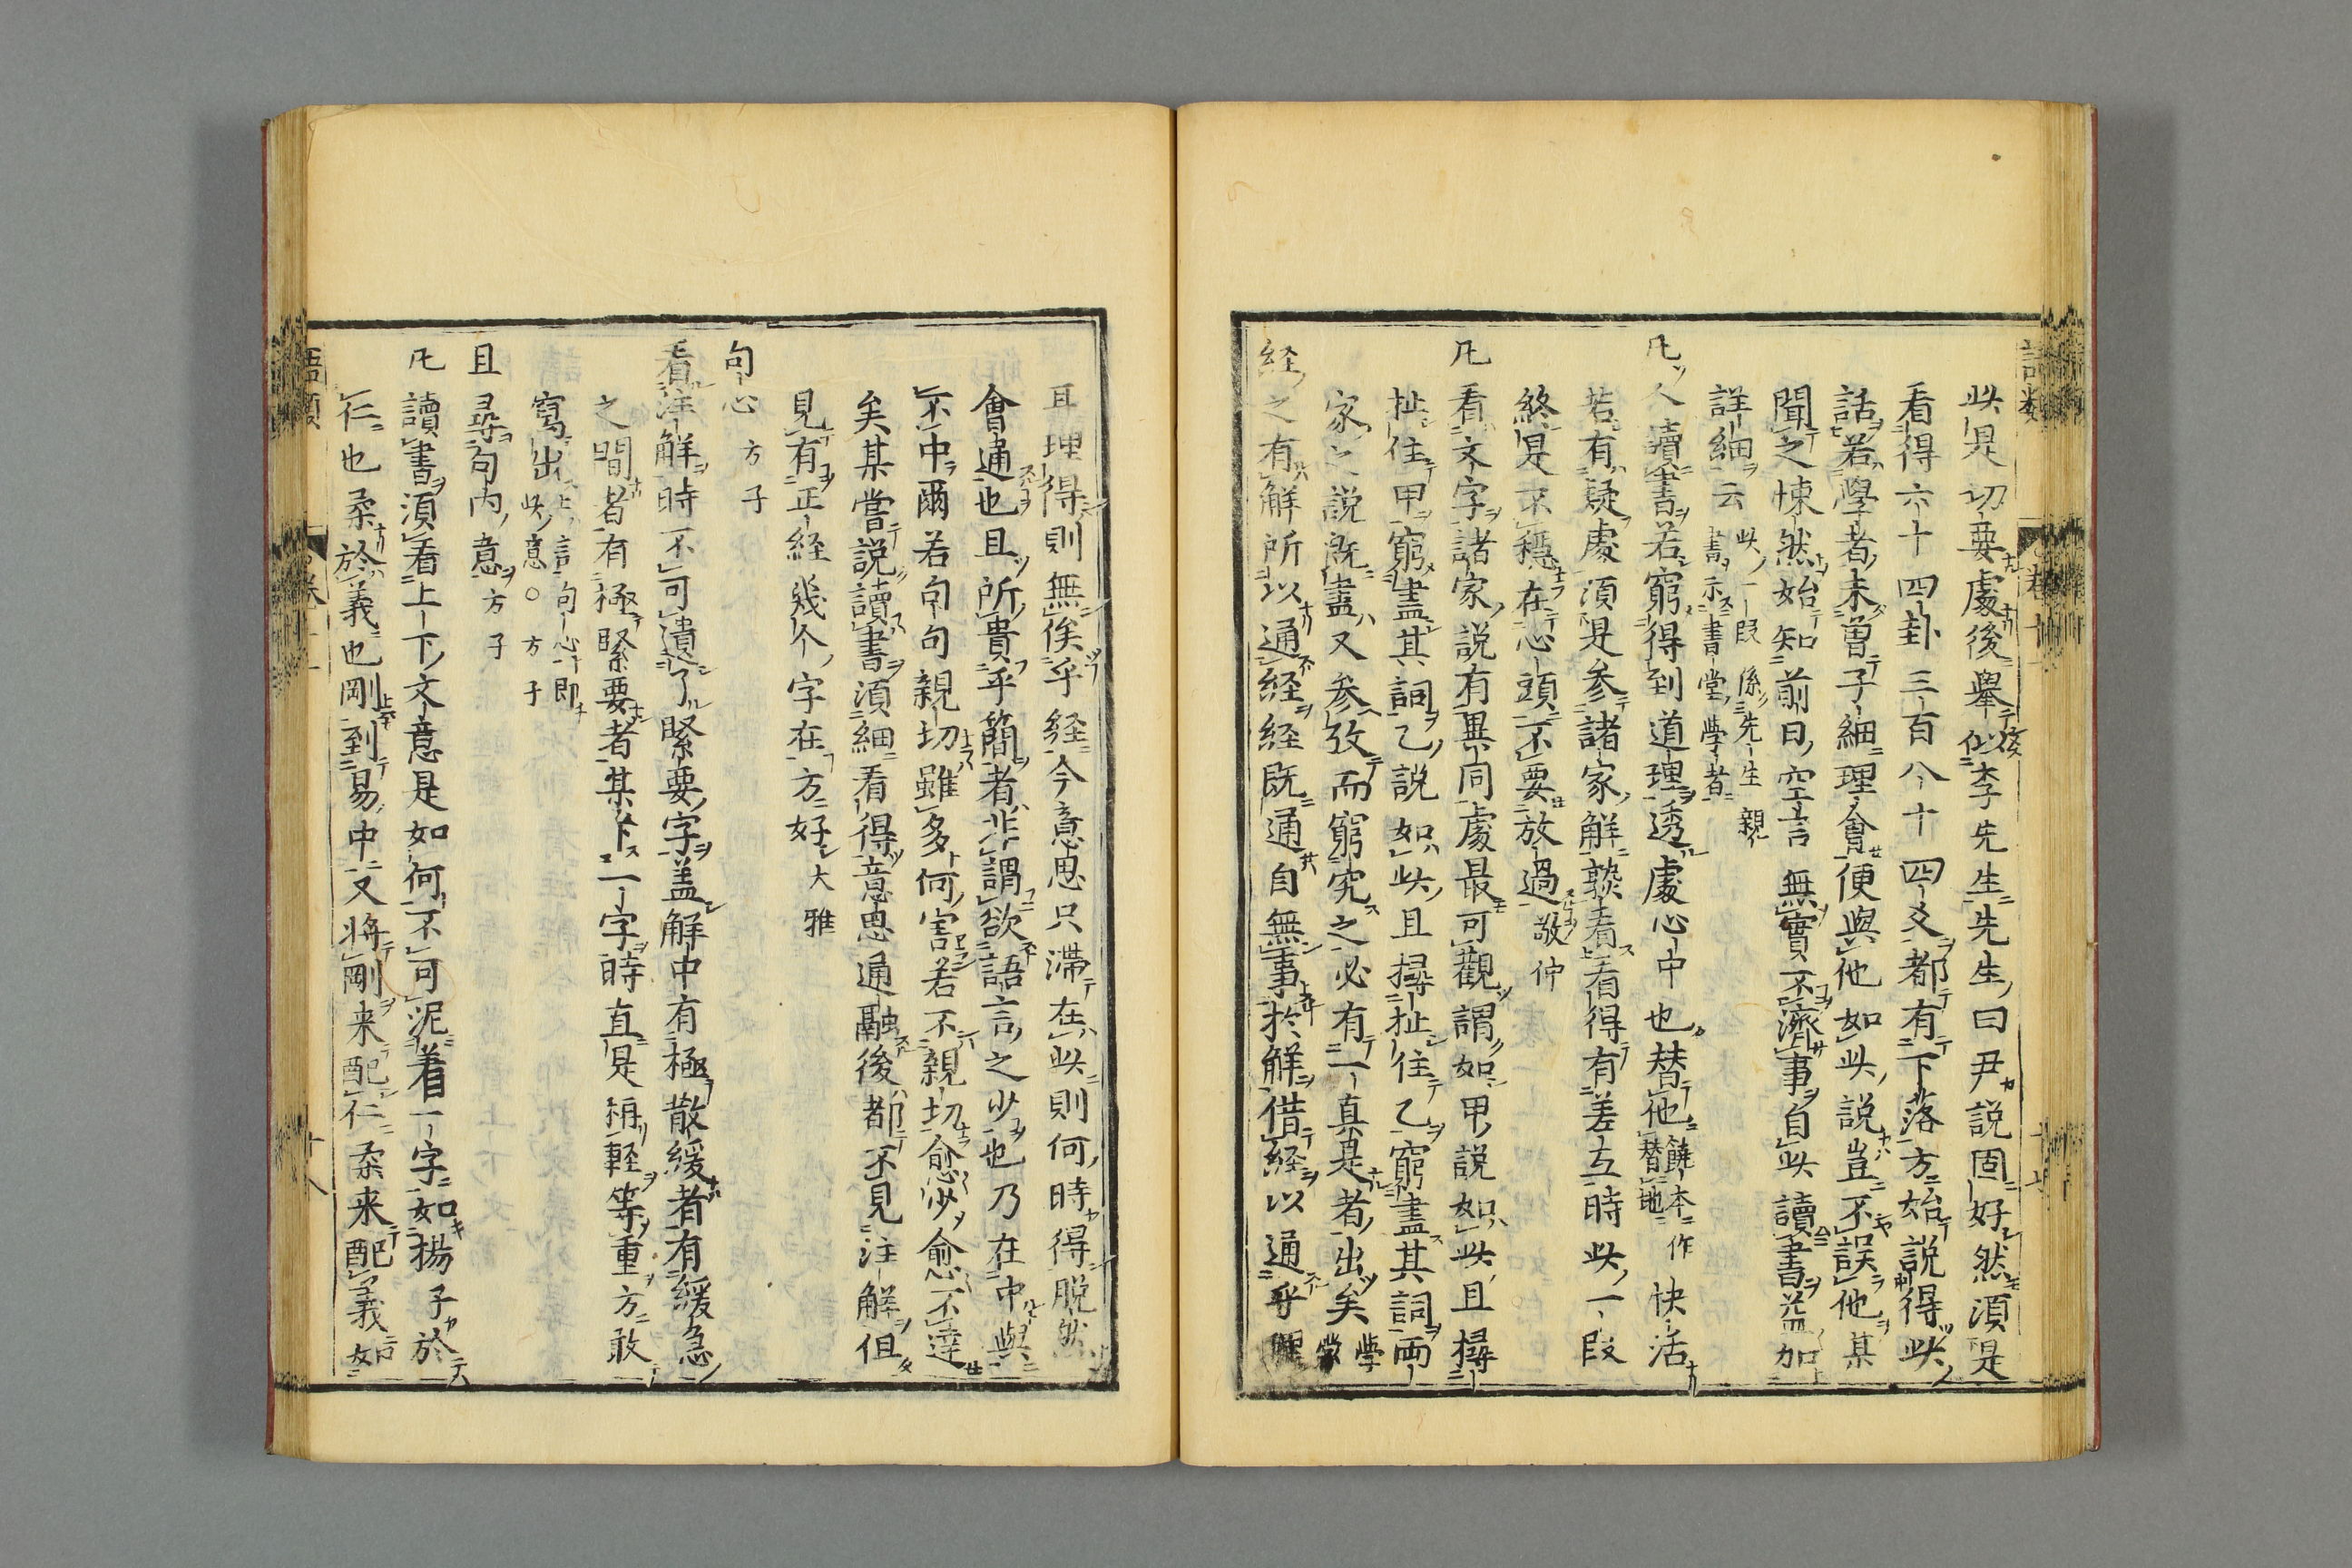 此是切要處後擧似李先生先生曰尹説固好然須是
看得六十四卦三百八十四爻都有下落方始説得此
話若學者未曽子細理會便與他如此説豈不誤他某
聞之悚然始知前日空言無實不濟事自此讀書益加
詳細云此一段係先生親書示書堂學者
凡人讀書若窮得到道理透處心中也替他饒本作替地快活
若有疑處須是参諸家解熟看看得有差互時此一段
終是不穩在心頭不要放過敬仲
凡看文字諸家説有異同處最可觀謂如甲説如此且撏
扯住甲窮盡其詞乙説如此且撏扯住乙窮盡其詞兩
家之説既盡又参攷而窮究之必有一真是者出矣學蒙
経之有解所以通経経既通自無事於解借経以通乎理
耳理得則無俟乎経今意思只滯在此則何時得脱然
會通也且所貴乎簡者非謂欲語言之少也乃在中與
不中爾若句句親切雖多何害若不親切愈少愈不達
矣某嘗説讀書須細看得意思通融後都不見注解但
見有正経幾个字在方好大雅
句心方子
看注解時不可遺了緊要字盖解中有極散緩者有緩急
之間者有極緊要者某下一字時直是稱輕等重方敢
寫出上言句心即此意○方子
且尋句内意方子
凡讀書須看上下文意是如何不可泥着一字如揚子於
仁也柔於義也剛到易中又將剛来配仁柔来配義如
語類
卷十一
十八